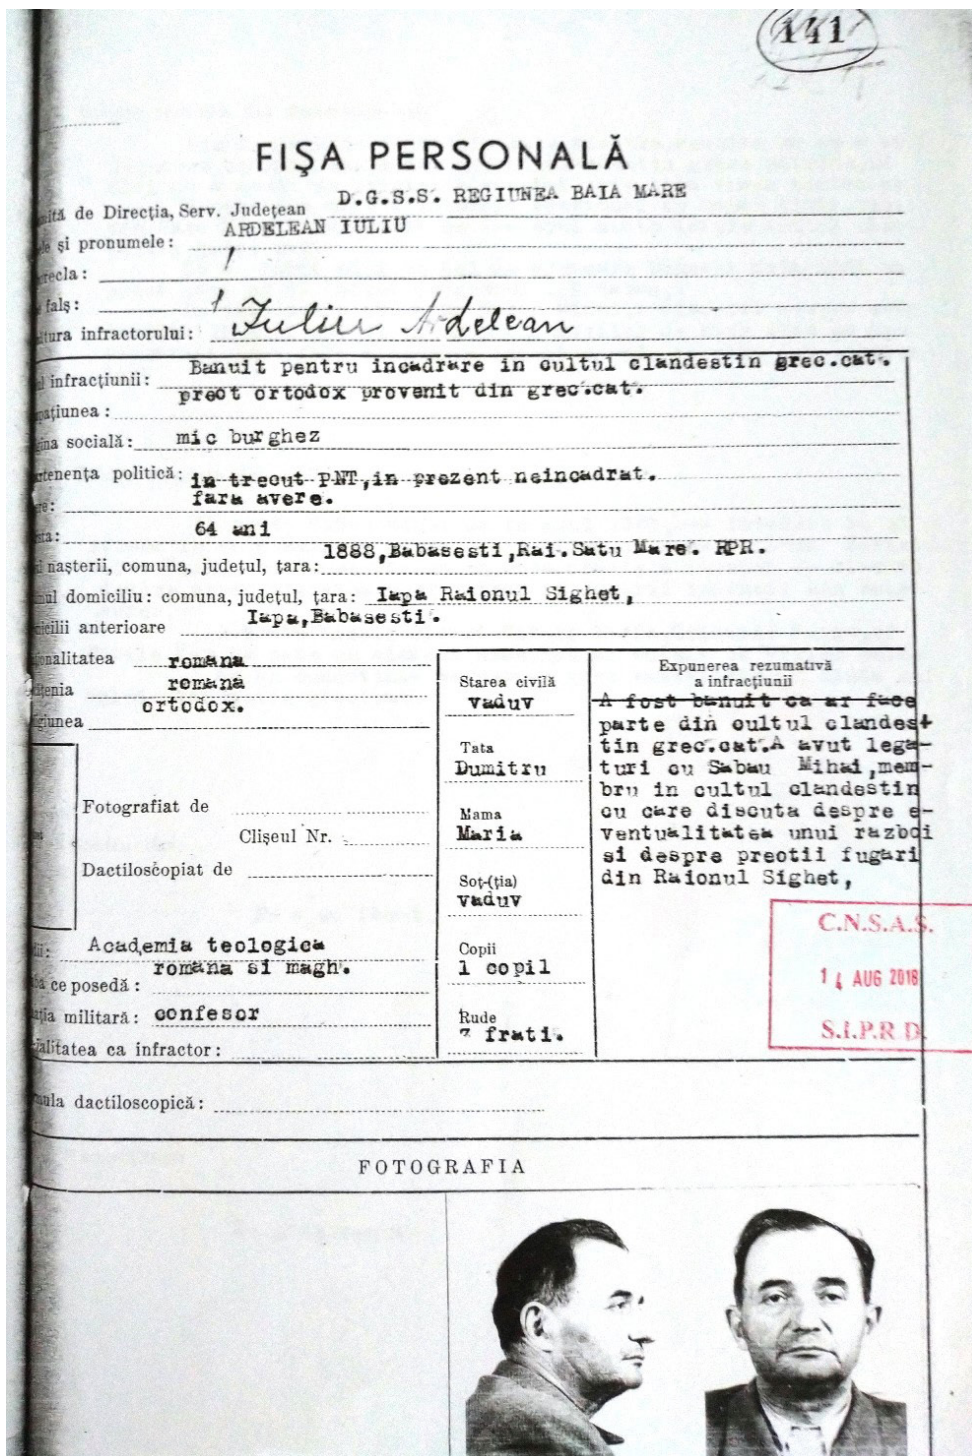 141
FIȘA PERSONALĂ
de Direcția, Serv. Județean D.G.S.S. REGIUNEA BAIA MARE
și pronumele: ARDELEAN IULIU
recla:
fals:
tura infractorului: Iuliu Ardelean
infracțiunii: Banuit pentru incadrare in cultul clandestin grec.cat.
pațiunea: preot ortodox provenit din grec.cat.
gina socială: mic burghez
rtenența politică: in trecut PNT,in prezent neincadrat.
re: fara avere.
sta: 64 ani
nașterii, comuna, județul, țara: 1888,Babasesti,Rai.Satu Mare. RPR.
ul domiciliu: comuna, județul, țara: Iapa Raionul Sighet,
icilii anterioare Iapa,Babasesti.
onalitatea romana
țenia romană
giunea ortodox.
Fotografiat de
Clișeul Nr.
Dactiloscopiat de
Academia teologica
ce posedă: romana si magh.
ația militară: confesor
alitatea ca infractor:
Starea civilă
vaduv
Tata
Dumitru
Mama
Maria
Soț-(ția)
vaduv
Copii
1 copil
Rude
frati.
Expunerea rezumativă
a infracțiunii
A fost banuit ca ar face
parte din cultul clandes-
tin grec.cat.A avut lega-
turi cu Sabau Mihai,mem-
bru in cultul clandestin
cu care discuta despre e-
ventualitatea unui razboi
si despre preotii fugari
din Raionul Sighet,
C.N.S.A.S.
14 AUG 2018
S.I.P.R.D.
ula dactiloscopică:
FOTOGRAFIA